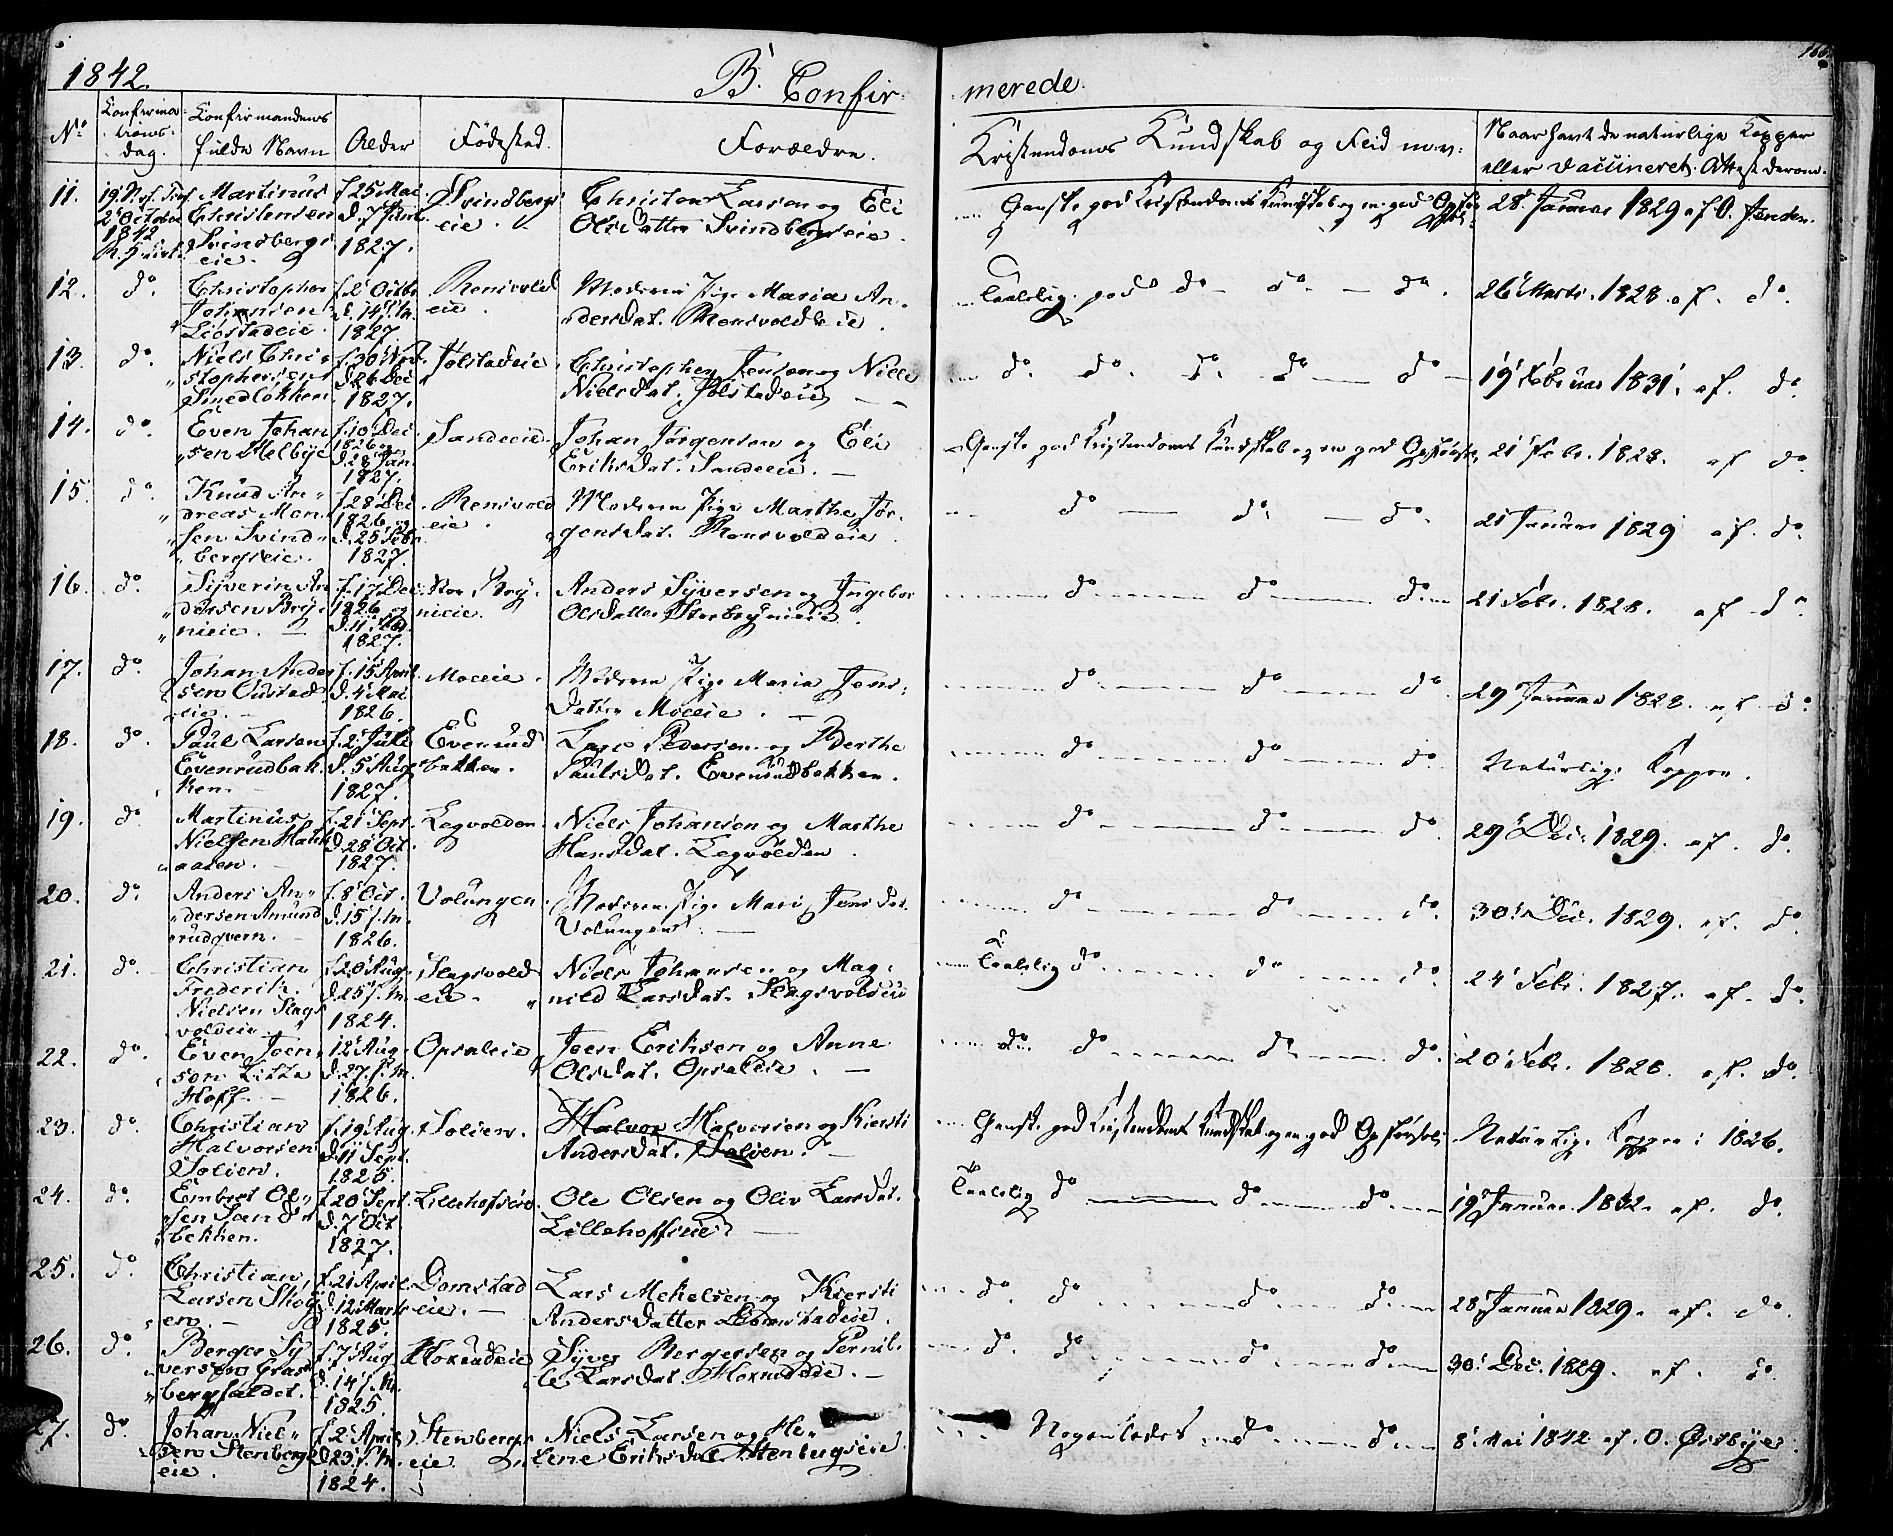 1842.
B. Confir-
merede.
166.
No
Konfirma-
tions-
dag.
Konfirmandens
fulde Navn
Alder
Födested.
Forældre.
Kristendoms Kundskab og Flid m.v:
Naar havt de naturlige Kopper
eller Vaccineret. Attest derom.
11.
2 October
1842
Martinus
Christensen
Svindbergs
eie.
f. 25 Mai
d. 7 Juni
1827.
Svindbergs
eie.
Christen Larsen og Eli
Olsdatter Svindbergseie.
Ganske god Kristendoms Kundskab og en god
28 Januar 1829 af O. Jensen.
12.
do.
Christopher
Johansen
f. 2 Octbr
d. 14 s. M.
1827
Rensvold
eie.
Moderen Pige Maria An-
dersdat. Rensvoldeie.
Taalelig god do do do.
26 Marts 1828 af do.
13.
do.
Niels Chri-
stophersen
Smedløkken
f. 30 Nov.
d. 26 Dec
1827.
Jölstadeie
Christopher Jensen og Nille
Nielsdat. Jölstadeie
do. do. do. do do
19 Februar 1831. af. do.
14.
do.
Even Johan
sen Melbye
f. 10 Dec
1826 og
d. 28 Jan
1827.
Sandeeie.
Johan Jörgensen og Eli
Eriksdat. Sandeeie.
Ganske god Kristendoms Kundskab og en god Opførsel
21 Febr. 1828. af do.
15.
do.
Knud An-
dreas Mon-
sen Svind-
bergseie.
f. 28 Dec
1826 og
d. 25 Febr
1827.
Rensvold
eie.
Moderen Pige Marthe Jør-
gensdat. Rensvoldeie.
do do. do.
21 Januar 1829 af. do.
16.
do.
Syverin An
dersen Bry-
nieie.
f. 17 Dec
1826 og
1827.
Stor Bry-
nieie.
Anders Syversen og Ingebor
Olsdatter Storbrynieie.
do do do.
21 Febr. 1828. af do
17.
do.
Johan Ander
sen
eie.
f. 15 April
d. 4 Mai
1826.
Moeeie.
Moderen Pige Maria Jens-
datter Moeeie.
do. do do.
29 Januar 1828. af do.
18.
do.
Paul Larsen
Evenrudbak
ken.
f. 2 Juli
d. 5 Aug
1827.
Evenrud
bakken.
Lars Pedersen og Berthe
Paulsdat. Evenrudbakken.
do do do.
Naturlige Kopper.
19.
do.
Martinus
Nielsen
f. 21 Sept
d. 28 Oct.
1827.
Legvolden.
Niels Johansen og Marthe
Hansdat. Legvolden.
do do. do.
29 Dec. 1829. af. do.
20.
do.
Anders An-
dersen Amund
rudqvern.
f. 8 Oct.
d. 15 s. M.
1826.
Volungen.
Moderen Pige Mari Jensdat.
Volungen.
do do do.
30 Dec. 1829. af. do.
21.
do.
Christian
Frederik
Nielsen Slags
voldeie.
f. 20 Aug
d. 25 s. M
1824.
Slagsvold
eie.
Niels Johansen og Mag-
nild Larsdat. Slagsvoldeie
Taalelig do do do.
24 Febr. 1827. af. do.
22.
do.
Even Joen
sen Lille
Hoff.
f. 12 Aug
d. 27 s. M.
1826.
Opsaleie
Joen Eriksen og Anne
Olsdat. Opsaleie.
do. do do do.
20 Febr. 1828. af. do.
23.
do.
Christian
Halvorsen
Solien.
f. 19 Aug
d. 11 Sept.
1825.
Solien.
Halvor Halvorsen og Kiersti
Andersdat. Solien.
Ganske god Kristendoms Kundskab og en god Opførsel
Naturlige Kopper i 1826.
24.
do.
Embret Ol-
sen Sand-
bekken.
f. 20 Sept.
d. 7 Oct
1827.
Lillehofseie.
Ole Olsen og Oliv Larsdat.
Lillehoffseie
Taalelig do do do
19 Januar 1832. af. do.
25.
do.
Christian
Larsen Skog
en.
f. 21 April
d. 12 Marts
1825.
Domstad
eie.
Lars Mekelsen og Kiersti
Andersdatter Domstadeie.
do. do do do
28 Januar 1829. af. do.
26.
do.
Berger Sy
versen Gras
bergfaldet.
f. 7 Aug
d. 14 s. M.
1825.
Moxnædeie
Syver Bergersen og Pernil-
le Larsdat. Moxnædeie.
do. do do do
30 Dec. 1829. af. do.
27.
do.
Johan Niel-
sen Stenbergs
eie.
f. 2 April
d. 23 s. M.
1824.
Stenbergs
eie.
Niels Larsen og He-
lene Eriksdat Stenbergseie.
Nogenledes do do
8 Mai 1842 af. O. Örsbye.